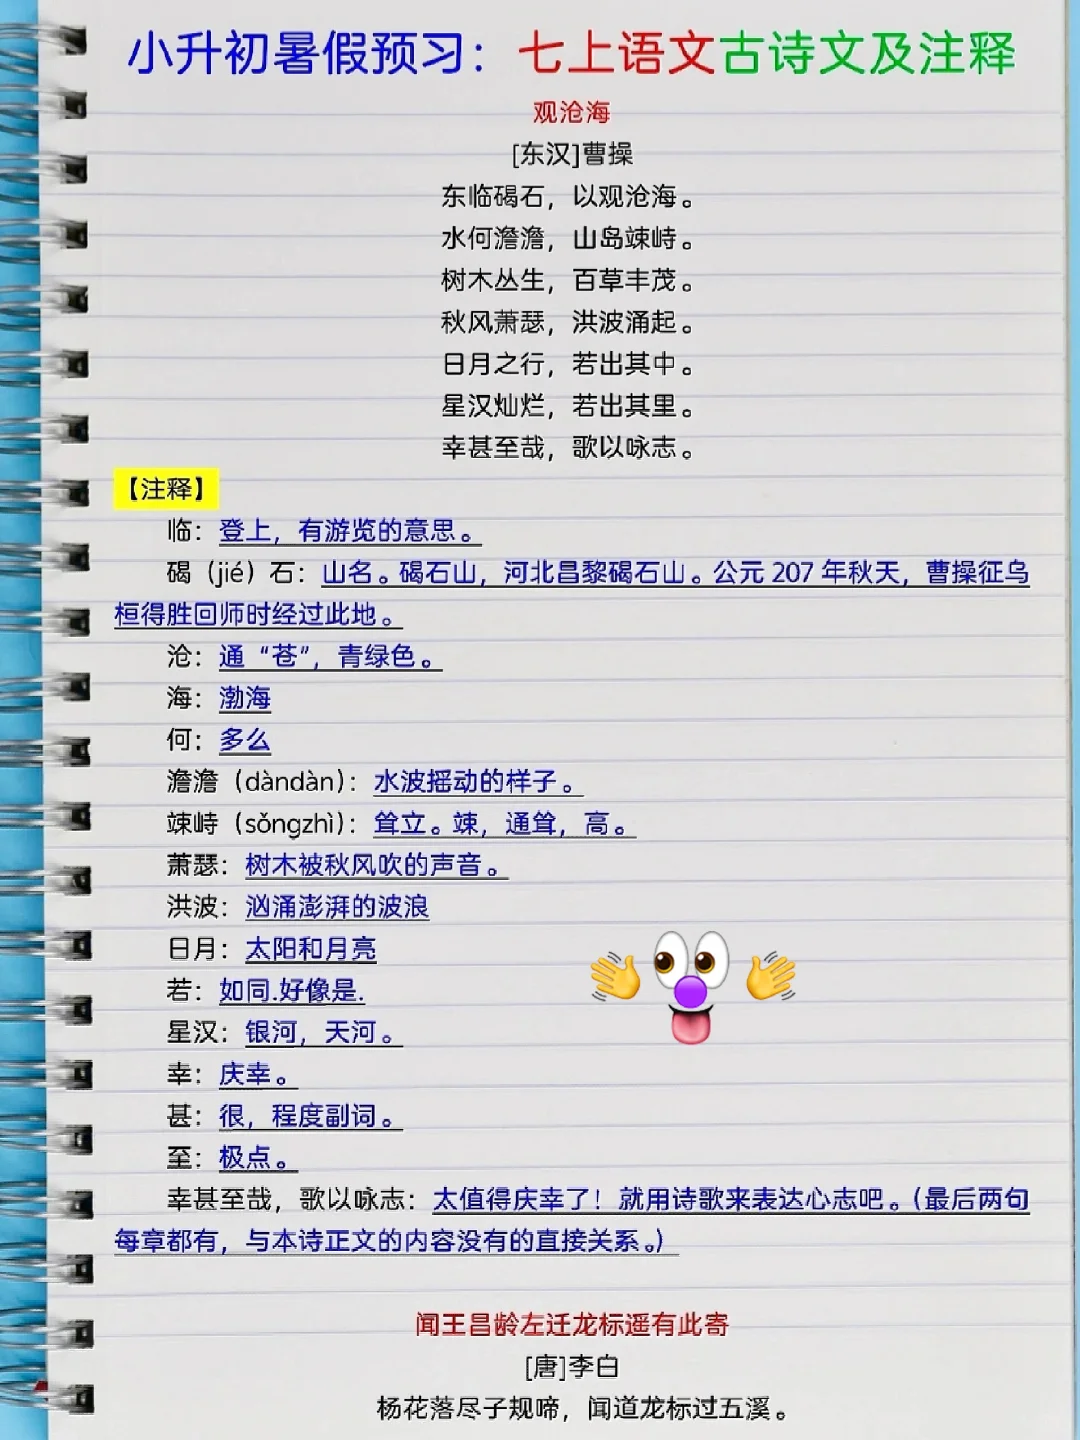 小升初暑假预习：七上语文古诗文及注释
观沧海
[东汉]曹操
东临碣石，以观沧海。
水何澹澹，山岛竦峙。
树木丛生，百草丰茂。
秋风萧瑟，洪波涌起。
日月之行，若出其中。
星汉灿烂，若出其里。
幸甚至哉，歌以咏志。
【注释】
临：登上，有游览的意思。
碣（jié）石：山名。碣石山，河北昌黎碣石山。公元 207 年秋天，曹操征乌
桓得胜回师时经过此地。
沧：通“苍”，青绿色。
海：渤海
何：多么
澹澹（dàndàn）：水波摇动的样子。
竦峙（sǒngzhì）：耸立。竦，通耸，高。
萧瑟：树木被秋风吹的声音。
洪波：汹涌澎湃的波浪
日月：太阳和月亮
若：如同.好像是.
星汉：银河，天河。
幸：庆幸。
甚：很，程度副词。
至：极点。
幸甚至哉，歌以咏志：太值得庆幸了！就用诗歌来表达心志吧。（最后两句
每章都有，与本诗正文的内容没有的直接关系。）
闻王昌龄左迁龙标遥有此寄
[唐]李白
杨花落尽子规啼，闻道龙标过五溪。